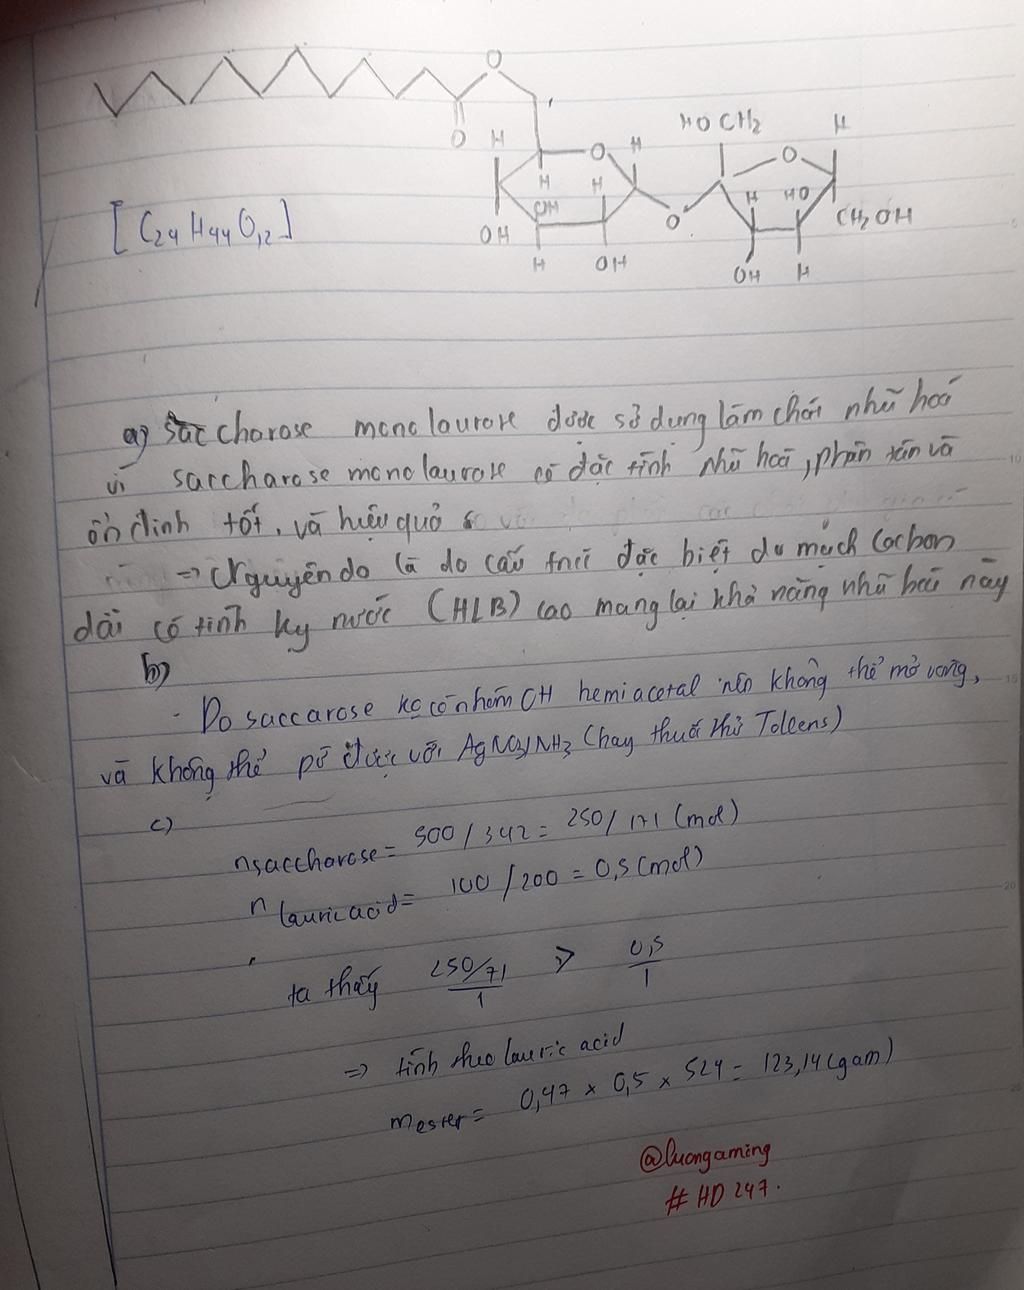 O
O
H
O
H
H
H
OH
OH
H
OH
O
HO CH2
O
H
H
HO
CH2 OH
OH
H
[C24 H44 O12]
a) Saccharose monolaurate được sử dụng làm chất nhũ hoá
vì saccharose monolaurate có đặc tính nhũ hoá, phân tán và
ổn định tốt, và hiệu quả
=> Nguyên do là do cấu trúc đặc biệt du mạch Cacbon
dài có tính kỵ nước (HLB) cao mang lại khả năng nhũ hoá này
b)
- Do saccarose ko có nhóm OH hemiacetal nên không thể mở vòng,
và không thể pứ được với AgNO3/NH3 (hay thuốc thử Tollens)
c)
nsaccharose = 500 / 342 = 250 / 171 (mol)
n lauric acid = 100 / 200 = 0,5 (mol)
ta thấy 250/71 / 1 > 0,5 / 1
=> tính theo lauric acid
mester = 0,47 x 0,5 x 524 = 123,14 (gam)
@luongaming
# HD 247.